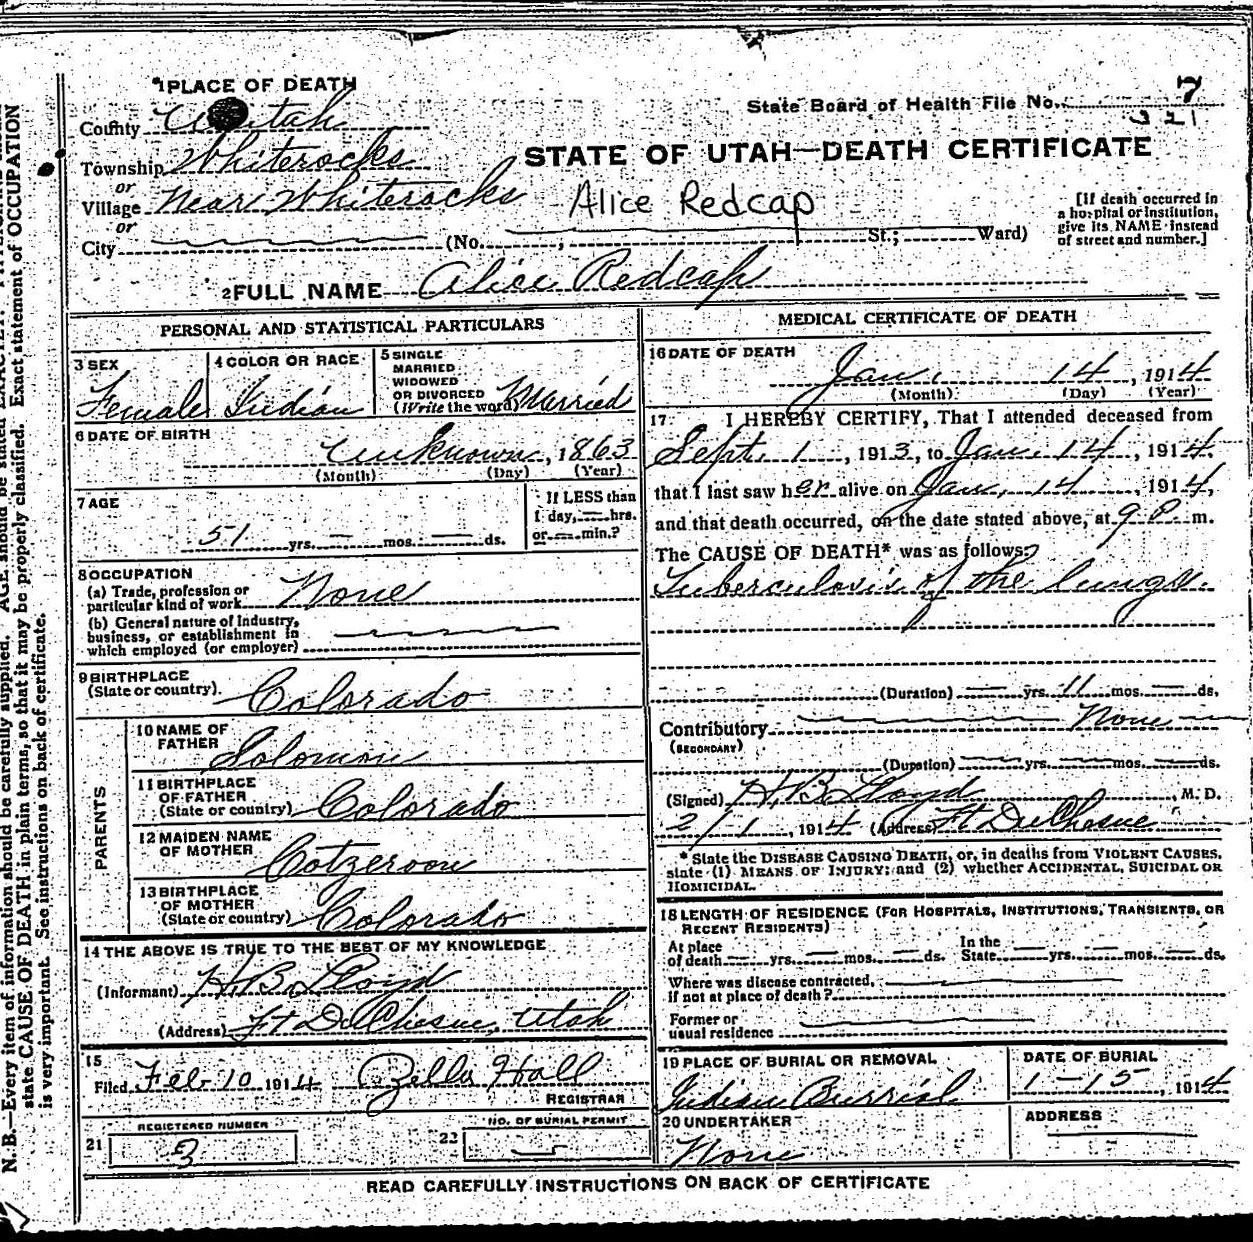 1 PLACE OF DEATH
County Uintah
Township Whiterocks
or
Village Near Whiterocks
or
City (No. ; St.; Ward)
State Board of Health File No. 7
321
STATE OF UTAH—DEATH CERTIFICATE
Alice Redcap
[If death occurred in
a hospital or institution,
give its NAME instead
of street and number.]
2 FULL NAME Alice Redcap
PERSONAL AND STATISTICAL PARTICULARS
3 SEX
Female
4 COLOR OR RACE
Indian
5 SINGLE
MARRIED
WIDOWED
OR DIVORCED
(Write the word) Married
6 DATE OF BIRTH
Unknown, 1863
(Month) (Day) (Year)
7 AGE
51 yrs. — mos. — ds.
If LESS than
1 day, — hrs.
or — min.?
8 OCCUPATION
(a) Trade, profession or
particular kind of work None
(b) General nature of Industry,
business, or establishment in
which employed (or employer)
9 BIRTHPLACE
(State or country) Colorado
PARENTS
10 NAME OF
FATHER Solomon
11 BIRTHPLACE
OF FATHER
(State or country) Colorado
12 MAIDEN NAME
OF MOTHER Cotzeroon
13 BIRTHPLACE
OF MOTHER
(State or country) Colorado
14 THE ABOVE IS TRUE TO THE BEST OF MY KNOWLEDGE
(Informant) H. B. Lloyd
(Address) Ft DuChesne, Utah
15
Filed Feb 10 1914 Zella Hall
REGISTRAR
REGISTERED NUMBER
21 3
NO. OF BURIAL PERMIT
22
MEDICAL CERTIFICATE OF DEATH
16 DATE OF DEATH
Jan. 14, 1914
(Month) (Day) (Year)
17 I HEREBY CERTIFY, That I attended deceased from
Sept. 1, 1913, to Jan. 14, 1914.
that I last saw her alive on Jan. 14, 1914,
and that death occurred, on the date stated above, at 9 P. m.
The CAUSE OF DEATH* was as follows:
Tuberculosis of the lungs.
(Duration) — yrs. 11 mos. — ds.
Contributory None
(SECONDARY)
(Duration) — yrs. — mos. — ds.
(Signed) H. B. Lloyd, M. D.
2/1, 1914 (Address) Ft DuChesne
* State the DISEASE CAUSING DEATH, or, in deaths from VIOLENT CAUSES,
state (1) MEANS OF INJURY; and (2) whether ACCIDENTAL, SUICIDAL OR
HOMICIDAL.
18 LENGTH OF RESIDENCE (FOR HOSPITALS, INSTITUTIONS, TRANSIENTS, OR
RECENT RESIDENTS)
At place
of death — yrs. — mos. — ds.
In the
State — yrs. — mos. — ds.
Where was disease contracted,
if not at place of death?
Former or
usual residence
19 PLACE OF BURIAL OR REMOVAL
Indian Burrial
DATE OF BURIAL
1-15, 1914
20 UNDERTAKER
None
ADDRESS
READ CAREFULLY INSTRUCTIONS ON BACK OF CERTIFICATE
N. B.—Every item of information should be carefully supplied. AGE should be stated EXACTLY.
state CAUSE OF DEATH in plain terms, so that it may be properly classified. Exact statement of OCCUPATION
is very important. See instructions on back of certificate.